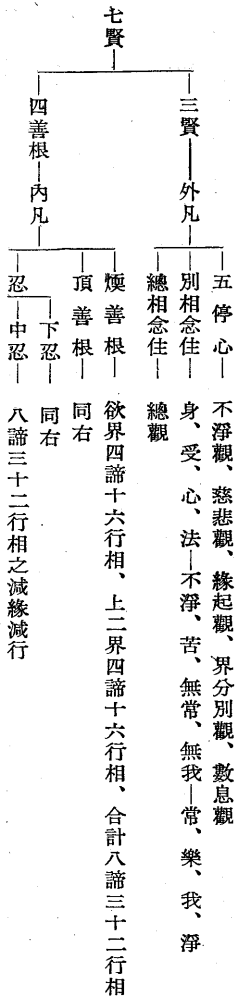 七賢
三賢—外凡
五停心—不淨觀、慈悲觀、緣起觀、界分別觀、數息觀
別相念住—身、受、心、法—不淨、苦、無常、無我—常、樂、我、淨
總相念住—總觀
四善根—內凡
煗善根—欲界四諦十六行相、上二界四諦十六行相、合計八諦三十二行相
頂善根—同右
忍
下忍—同右
中忍—八諦三十二行相之減緣減行